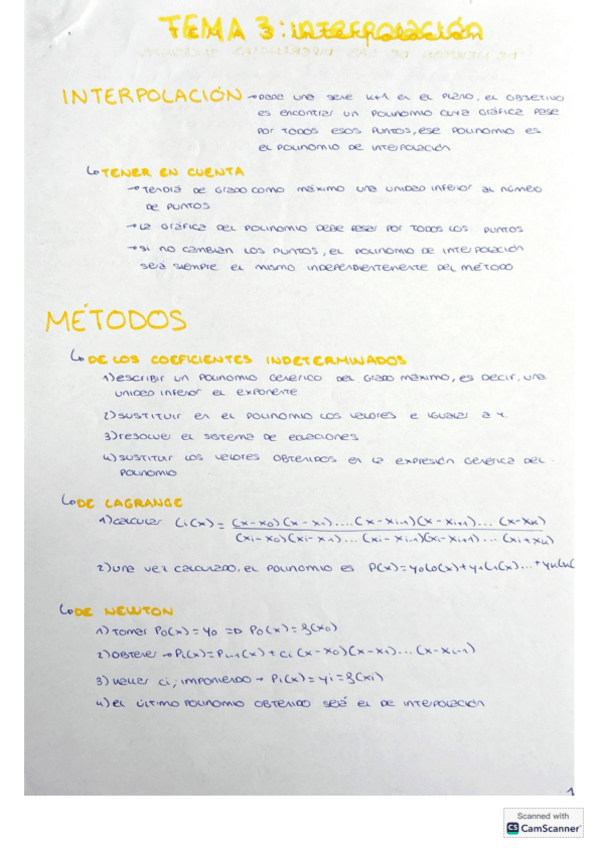 TEMA 3: INTERPOLACIÓN
INTERPOLACIÓN → DADA UNA SERIE K+1 EN EL PLANO, EL OBJETIVO
ES ENCONTRAR UN POLINOMIO CUYA GRÁFICA PASE
POR TODOS ESOS PUNTOS, ESE POLINOMIO ES
EL POLINOMIO DE INTERPOLACIÓN
↳ TENER EN CUENTA
→ TENDRÁ DE GRADO COMO MÁXIMO UNA UNIDAD INFERIOR AL NÚMERO
DE PUNTOS
→ LA GRÁFICA DEL POLINOMIO DEBE PASAR POR TODOS LOS PUNTOS
→ SI NO CAMBIAN LOS PUNTOS, EL POLINOMIO DE INTERPOLACIÓN
SERÁ SIEMPRE EL MISMO INDEPENDIENTEMENTE DEL MÉTODO
MÉTODOS
↳ DE LOS COEFICIENTES INDETERMINADOS
1) ESCRIBIR UN POLINOMIO GENÉRICO DEL GRADO MÁXIMO, ES DECIR, UNA
UNIDAD INFERIOR EL EXPONENTE
2) SUSTITUIR EN EL POLINOMIO LOS VALORES E IGUALAR A Y.
3) RESOLVER EL SISTEMA DE ECUACIONES
4) SUSTITUIR LOS VALORES OBTENIDOS EN LA EXPRESIÓN GENÉRICA DEL
POLINOMIO
↳ DE LAGRANGE
1) CALCULAR Li(x) = (x-x0)(x-x1)....(x-xi-1)(x-xi+1)... (x-xk)
(xi-x0)(xi-x1)... (xi-xi-1)(xi-xi+1)... (xi+xk)
2) UNA VEZ CALCULADO, EL POLINOMIO ES P(x)=y0L0(x)+y1L1(x)...+ykLk(
↳ DE NEWTON
1) TOMAR P0(x)=y0 => P0(x)=f(x0)
2) OBTENER → Pi(x)=Pi-1(x)+ci(x-x0)(x-x1)...(x-xi-1)
3) HALLAR ci; IMPONIENDO → Pi(x)=yi=f(xi)
4) EL ÚLTIMO POLINOMIO OBTENIDO SERÁ EL DE INTERPOLACIÓN
1
Scanned with
CS CamScanner